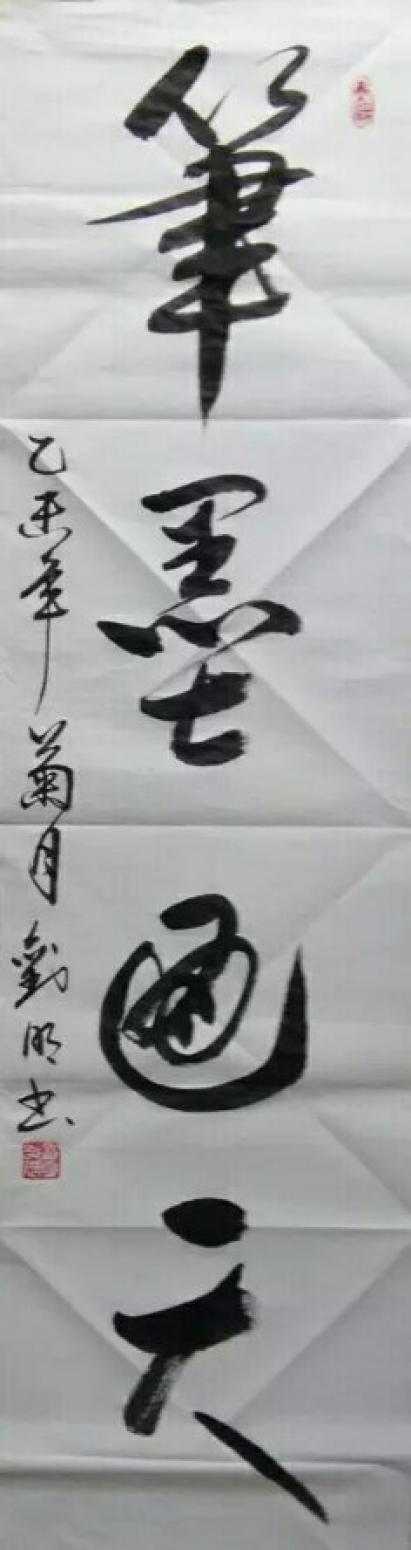 筆墨通天
乙未年菊月劉明书